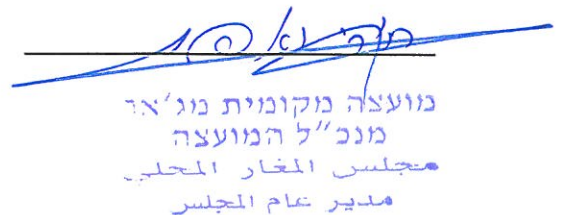 מועצה מקומית מג'אר
מנכ"ל המועצה
مجلس المغار المحلي
مدير عام المجلس